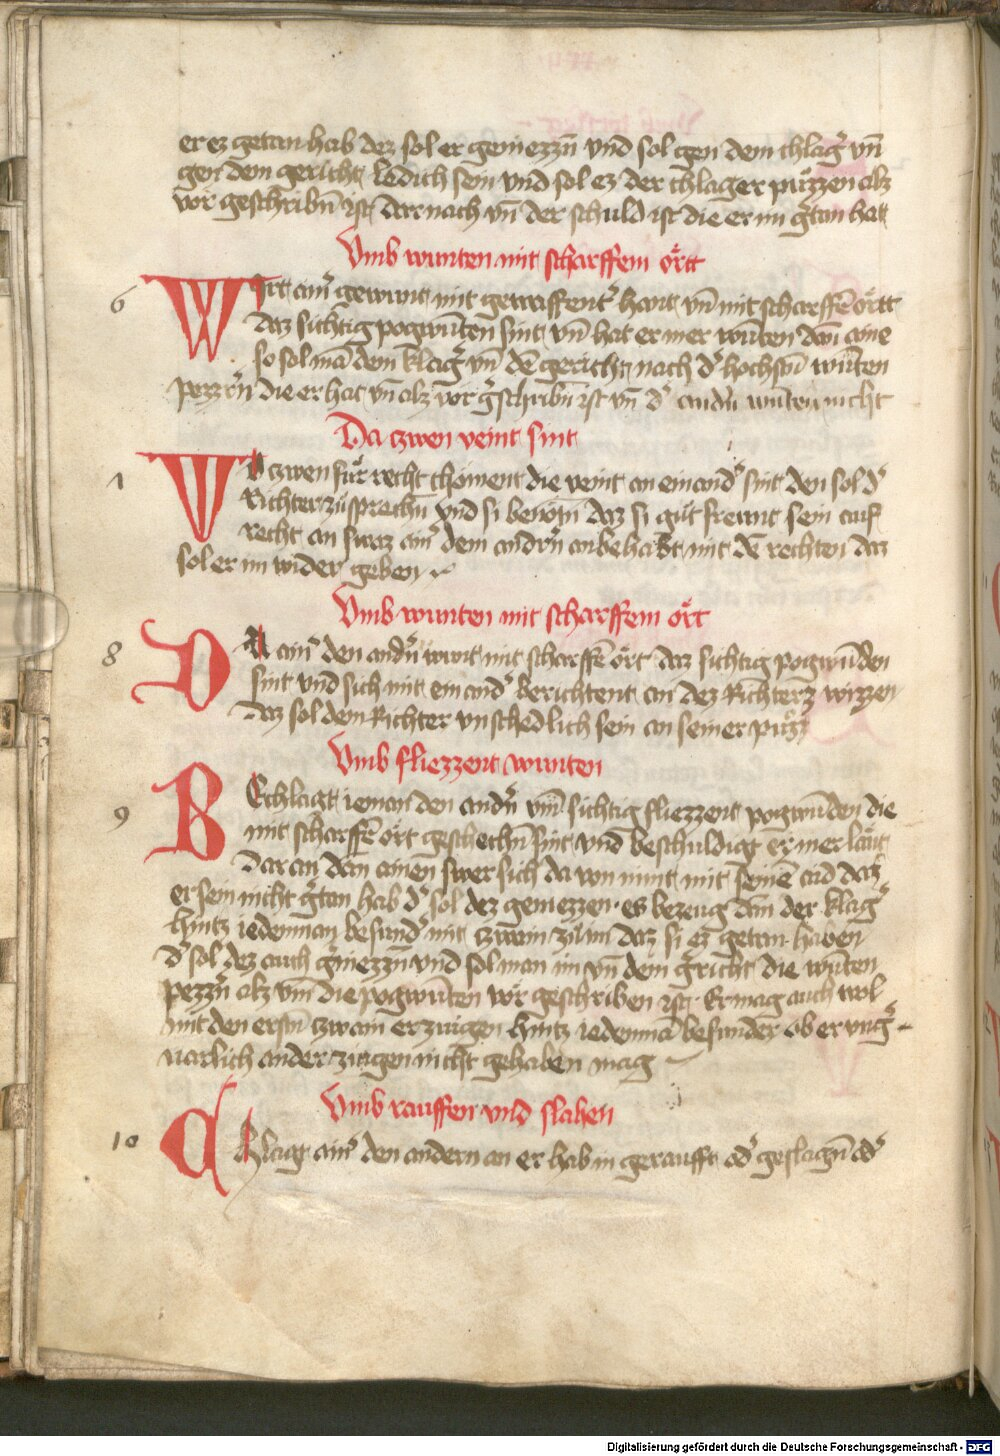 er ez getan hab dez sol er geniezzn̄ vnd sol gen dem chlag̓ vn̄
gen dem gericht ledich sein vnd sol ez der chlager puͤzzen alz
vor geschribn̄ ist dar nach vn̄ der schuld ist die er im g̓tan hat
Vmb wunten mit scharffem oͤrtt
6
Wirt ain̓ gewunt mit gewaffent̓ hant vn̄ mit scharffē oͤrtt
daz sichtig pogwūten sint vn̄ hat er mer wūten dān aine
so sol mā dem klag̓ vn̄ dē gericht nach d̓ hochstn̄ wūten
pezzr̄n die er hat vn̄ alz vor g̓schribn̄ ist vn̄ d̓ andn̓ wūten nicht
Da zwen veint sint
1
Wo zwen fuͤr recht choment die veint an einand̓ sint den sol d̓
Richter zuͤsprechn̄ vnd si benotn̄ daz si guͤt frewnt sein auf
recht an swaz ain̓ dem andr̄n anbehabt mit dē rechten daz
sol er im wider geben
Vmb wunten mit scharffem oͤrt
8
Da ain̓ den andn̓ wunt mit scharffē oͤrt daz sichtig pogwūden
sint vnd sich mit einand̓ berichtent an dez Richterz wizzen
daz sol dem Richter vnschedlich sein an seiner puͤzz
Vmb fliezzent wunten
9
Bechlagt ieman den andn̓ vm̄ sichtig fliezzent pogwūden die
mit scharffē oͤrt geschechn̄ sint vnd beschuldigt er mer laͤut
daran dān ainen swer sich da von nimt mit seinē aid daz
er sein nicht g̓tan hab d̓ sol dez geniezzen es bezeug dān der klag̓
hintz iedemman besund̓ mit zwain zu im daz si ez getan haben
d̓ sol dez auch g̓niezzn̄ vnd sol man im vn̄ dem g̓richt die wūten
pezzn̓ alz vm̄ die pogwūten vor geschriben ist Er mag auch wol
mit den erstn̄ zwain erzeugen hintz iedemmā besunder ob er vng̓
uarlich ander zeugen nicht gehaben mag
Vmb rauffen vnd slahen
10
Chlagt ain̓ den andern an er hab in gerauft od̓ geslagn̄ od̓
Digitalisierung gefördert durch die Deutsche Forschungsgemeinschaft - DFG